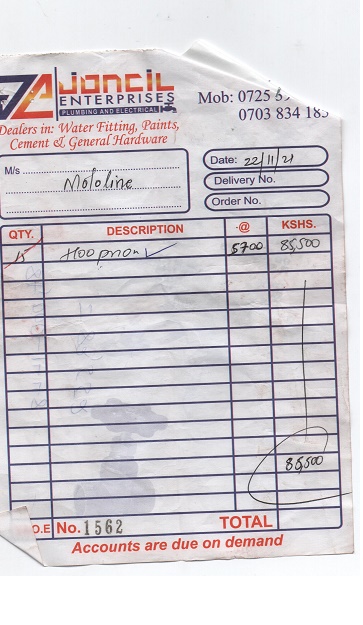 JONCIL
ENTERPRISES
PLUMBING AND ELECTRICAL
Dealers in: Water Fitting, Paints,
Cement & General Hardware
Mob: 0725
0703 834 185
M/s
Mololine
Date: 22/11/21
Delivery No.
Order No.
QTY. DESCRIPTION @ KSHS.
15 Hoopiron 5700 85,500
85,500
O.E No. 1562 TOTAL
Accounts are due on demand